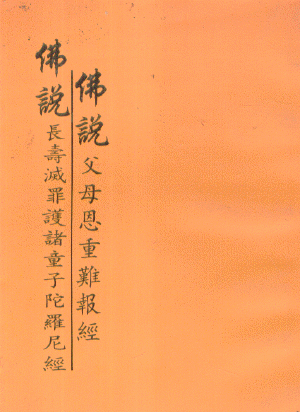 佛說父母恩重難報經
佛說長壽滅罪護諸童子陀羅尼經